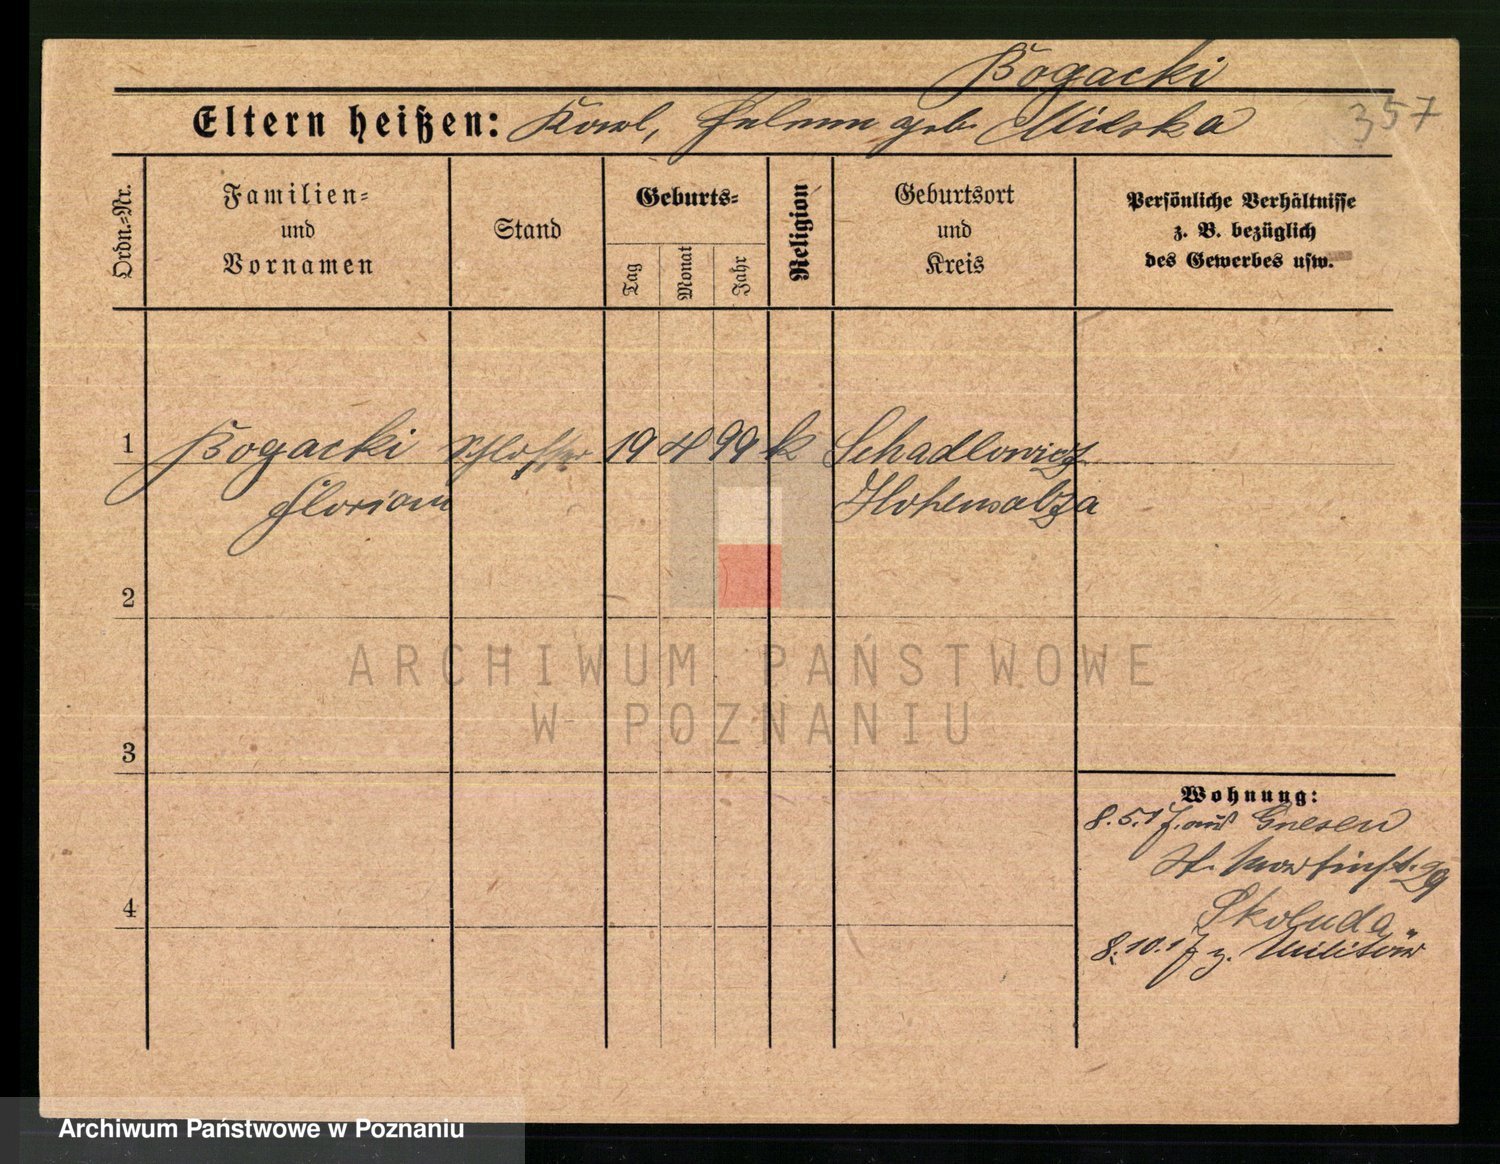 Bogacki
Eltern heißen: Karl, geb. Milska
357
Ordn.-Nr.
Familien-
und
Vornamen
Stand
Geburts-
Tag
Monat
Jahr
Religion
Geburtsort
und
Kreis
Persönliche Verhältnisse
z. B. bezüglich
des Gewerbes usw.
1 Bogacki Schlosser 19 4 99 k Schadlowicz
Florian Hohensalza
2
ARCHIWUM PAŃSTWOWE
W POZNANIU
3
Wohnung:
8.5.17. aus Gnesen
St. Martinstr.
Skoluda
4
8.10.17 z. Militär
Archiwum Państwowe w Poznaniu